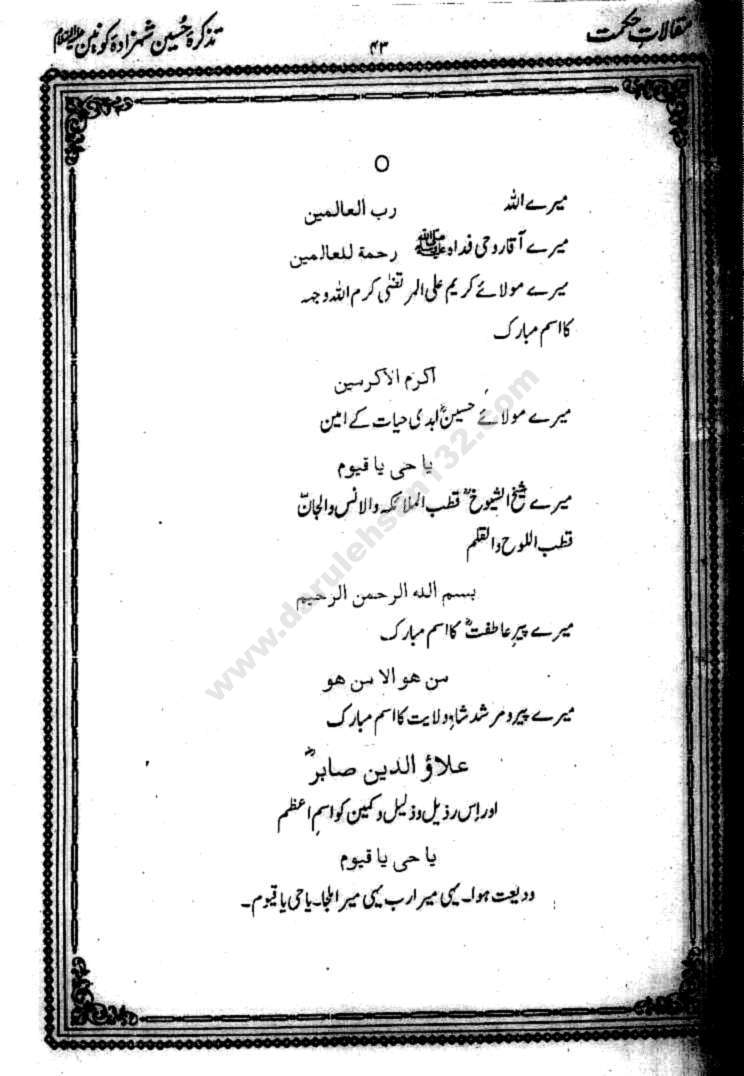 مقالات حکمت
۴۳
تذکرۂ حُسین شہزادۂ کونین علیہ السلام
○
میرے اللہ رب العالمین
میرے آقا روحی فداہ ﷺ رحمة للعالمین
میرے مولائے کریم علی المرتضیٰ کرم اللہ وجہہ
کا اسم مبارک
اکرم الاکرمین
میرے مولائے حسینؓ ابدی حیات کے امین
یا حی یا قیوم
میرے شیخ الشیوخؒ قطب الملائکہ والانس والجانؒ
قطب اللوح والقلم
بسم الله الرحمن الرحیم
میرے پیرِ عاطفتؒ کا اسم مبارک
من هو الا من هو
میرے پیر و مرشد شاہِ ولایت کا اسم مبارک
علاؤ الدین صابرؒ
اور اِس رذیل و ذلیل و کمین کو اسمِ اعظم
یا حی یا قیوم
ودیعت ہوا۔ یہی میرا رب یہی میرا ملجا۔ یا حی یا قیوم۔
www.darulehsan132.com